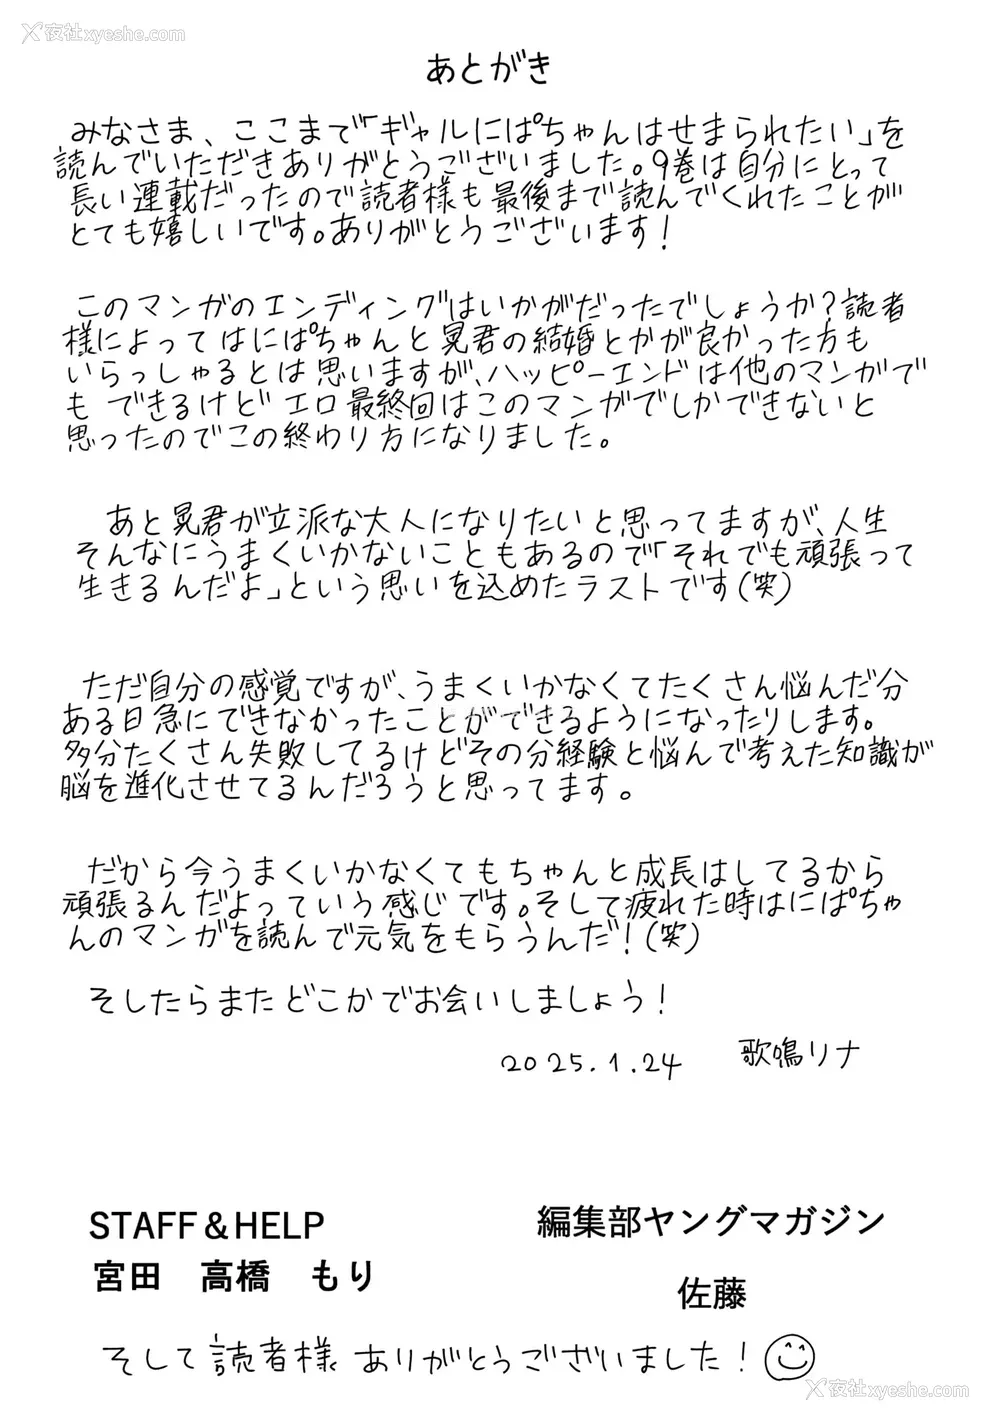 夜社xyeshe.com
あとがき
みなさま、ここまで「ギャルにぱちゃんはせまられたい」を
読んでいただきありがとうございました。9巻は自分にとって
長い連載だったので読者様も最後まで読んでくれたことが
とても嬉しいです。ありがとうございます!
このマンガのエンディングはいかがだったでしょうか?読者
様によってはにぱちゃんと晃君の結婚とかが良かった方も
いらっしゃるとは思いますが、ハッピーエンドは他のマンガで
もできるけどエロ最終回はこのマンガでしかできないと
思ったのでこの終わり方になりました。
あと晃君が立派な大人になりたいと思ってますが、人生
そんなにうまくいかないこともあるので「それでも頑張って
生きるんだよ」という思いを込めたラストです(笑)
ただ自分の感覚ですが、うまくいかなくてたくさん悩んだ分
ある日急にできなかったことができるようになったりします。
多分たくさん失敗してるけどその分経験と悩んで考えた知識が
脳を進化させてるんだろうと思ってます。
だから今うまくいかなくてもちゃんと成長はしてるから
頑張るんだよっていう感じです。そして疲れた時はにぱちゃ
んのマンガを読んで元気をもらうんだ!(笑)
そしたらまたどこかでお会いしましょう!
2025.1.24 歌鳴リナ
STAFF&HELP
宮田 高橋 もり
編集部ヤングマガジン
佐藤
そして読者様 ありがとうございました!
夜社xyeshe.com